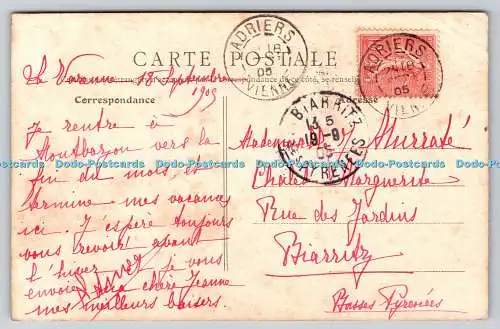 CARTE POSTALE
ADRIERS
18
05
VIENNE
ADRIERS
18
05
VIENNE
La Varenne 18 Septembre
1905
Correspondance
BIARRITZ
13 5
19-9
05
PYRENEES
Je rentre à
Montbazon vers la
fin du mois, et
termine mes vacances
ici. J'espère toujours
vous revoir avant
l'hiver. Je vous
envoie chère Jeanne
mes meilleurs baisers.
Mademoiselle
Chalet Marguerite
Rue des Jardins
Biarritz
Basses Pyrénées
Dodo-Postcards Dodo-Postcards Dodo-Postcards Dodo-Postcards Dodo-Postcards